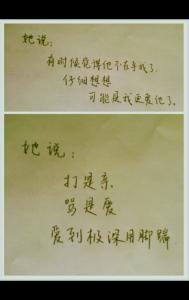 她说：
有时候觉得他不在乎我了。
仔细想想
可能是我更爱他了。
她说：
打是亲
骂是爱
爱到极深用脚踹